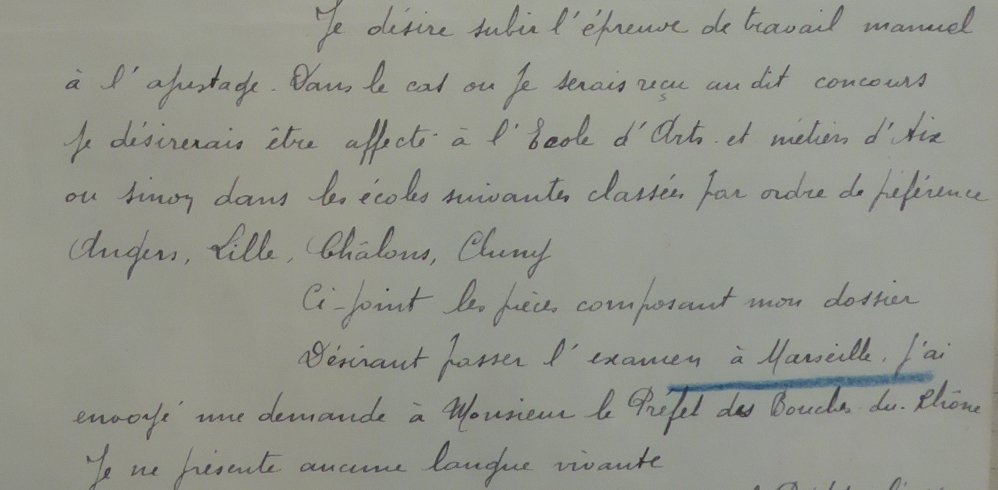 Je désire subir l'épreuve de travail manuel
à l'ajustage. Dans le cas ou Je serais reçu au dit concours
Je désirerais être affecté à l'Ecole d'Arts et métiers d'Aix
ou sinon dans les écoles suivantes classées par ordre de péférence
Angers, Lille, Châlons, Cluny
Ci-joint les pièces composant mon dossier
Désirant passer l'examen à Marseille. J'ai
envoyé une demande à Monsieur le Préfet des Bouches-du-Rhône
Je ne présente aucune langue vivante